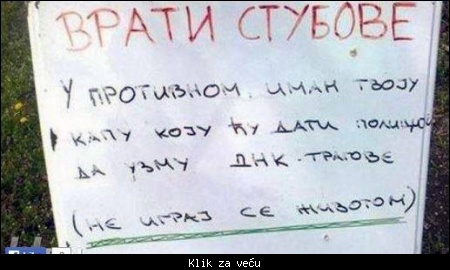 ВРАТИ СТУБОВЕ
У ПРОТИВНОМ, ИМАМ ТВОЈУ
КАПУ КОЈУ ЋУ ДАТИ ПОЛИЦИЈИ
ДА УЗМУ ДНК-ТРАГОВЕ
(НЕ ИГРАЈ СЕ ЖИВОТОМ)
Klik za veću